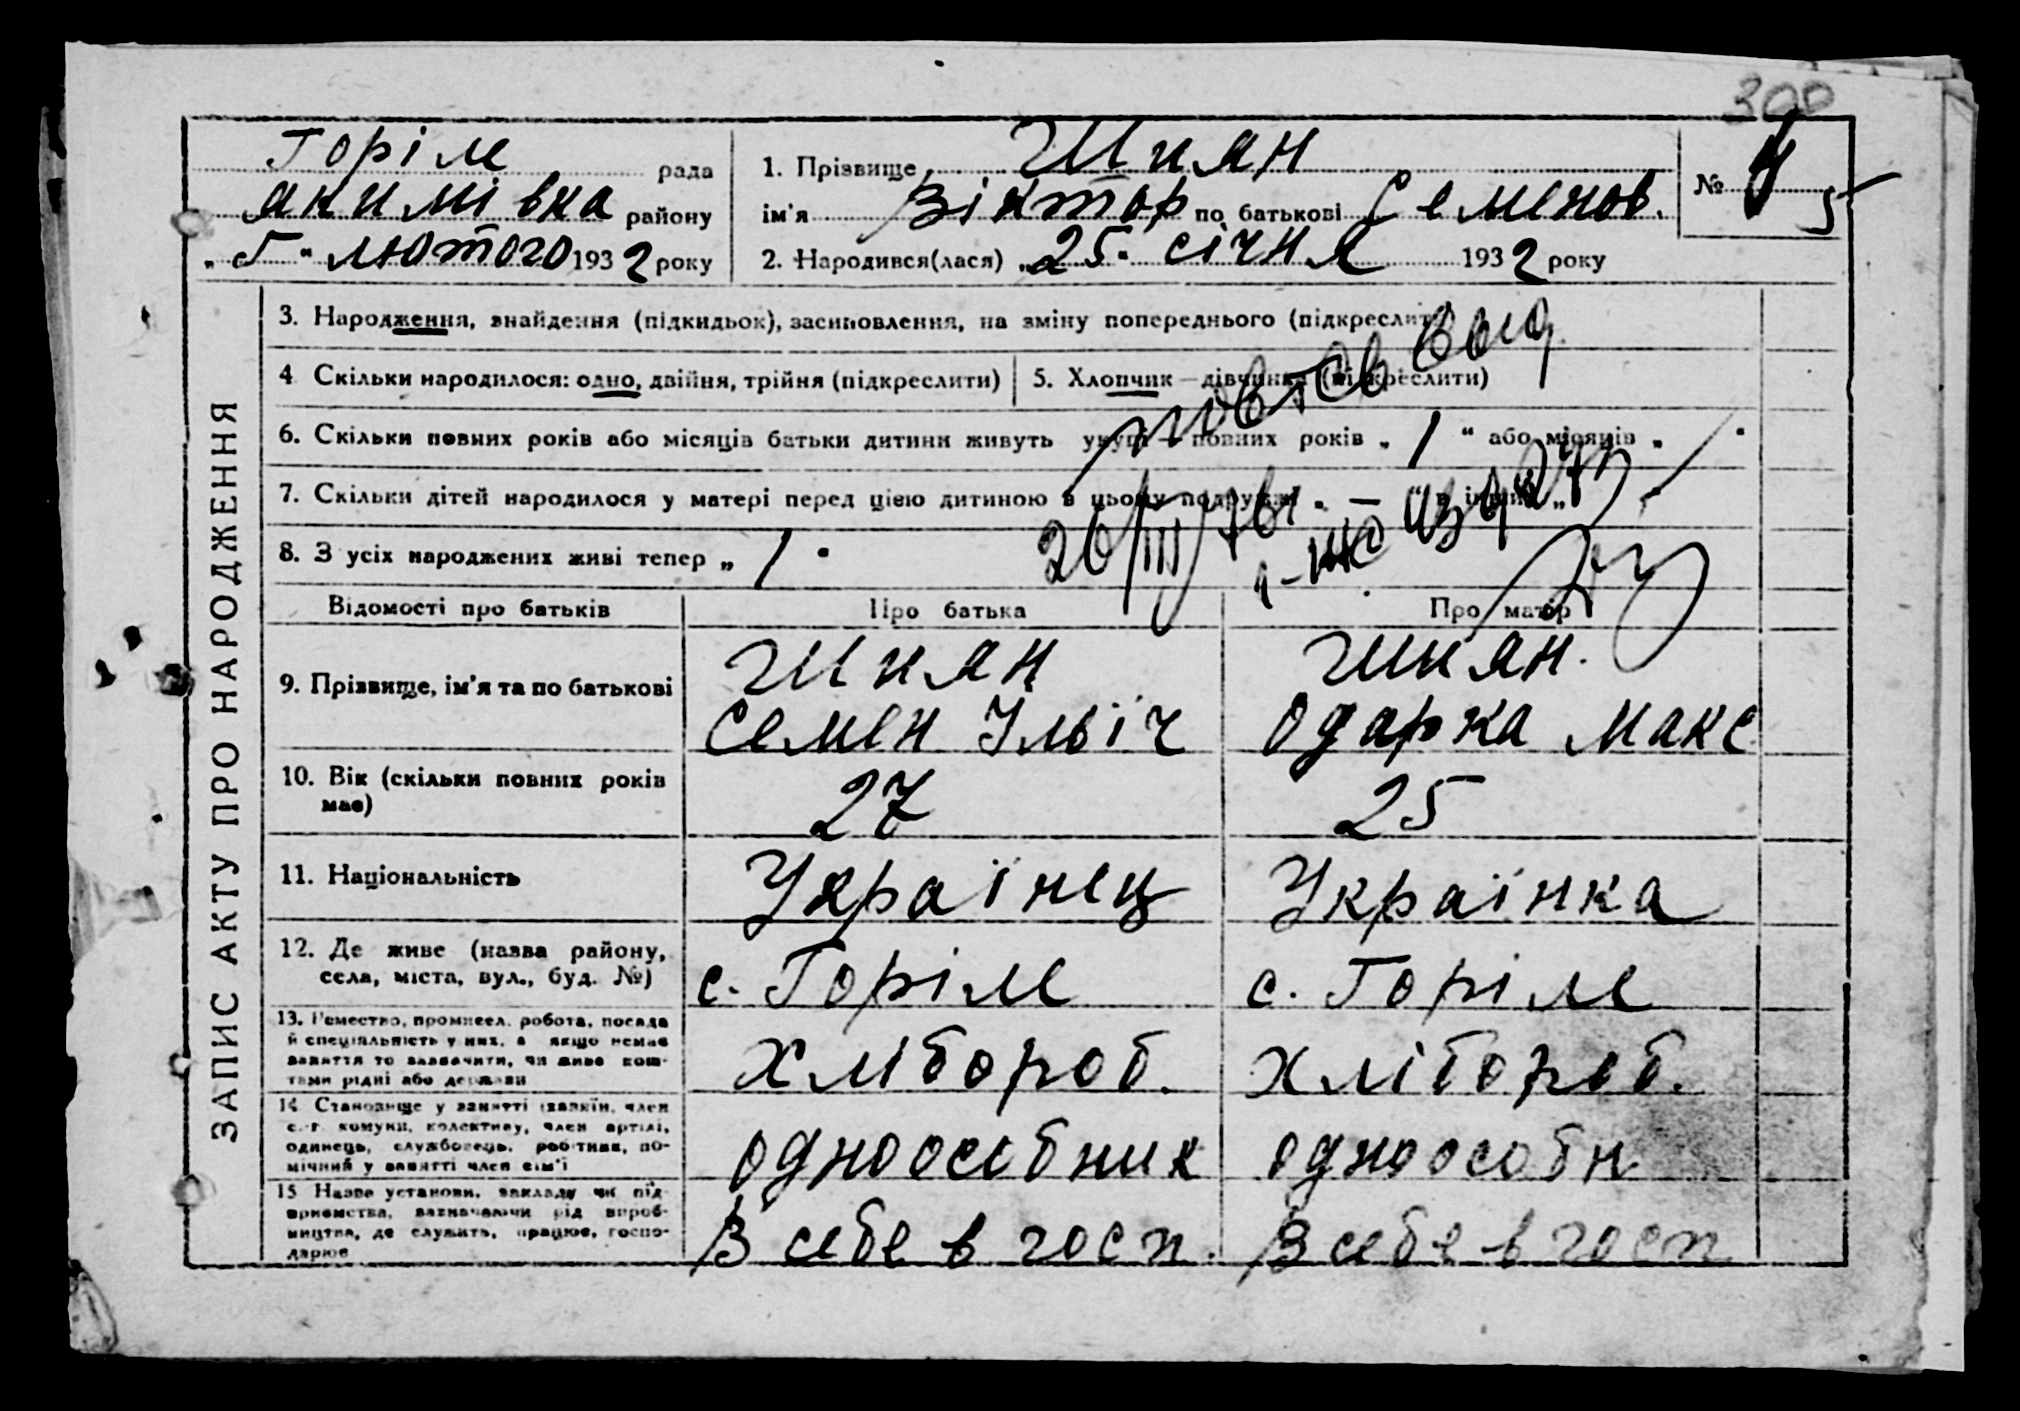 300
Горіле рада
Якимівка району
„5“ лютого 1932 року
1. Прізвище Шиян
ім'я Віктор по батькові Семенов.
2. Народився(лася) „25“ січня 1932 року
№ 5
ЗАПИС АКТУ ПРО НАРОДЖЕННЯ
3. Народження, знайдення (підкидьок), засиновлення, на зміну попереднього (підкреслити)
4 Скільки народилося: одно, двійня, трійня (підкреслити)
5. Хлопчик — дівчинка (підкреслити)
6. Скільки повних років або місяців батьки дитини живуть укупі — повних років „1“ або місяців „
7. Скільки дітей народилося у матері перед цією дитиною в цьому подружжі „ — “ в інших „
8. З усіх народжених живі тепер „1
повт св выд.
26/III 76г.
Відомості про батьків
Про батька
Про матір
9. Прізвище, ім'я та по батькові
Шиян
Семен Ільїч
Шиян.
Одарка Макс
10. Вік (скільки повних років має)
27
25
11. Національність
Українец
Українка
12. Де живе (назва району, села, міста, вул., буд. №)
с. Горіле
с. Горіле
13. Ремество, промисел, робота, посада й спеціяльність у них, а якщо немає заняття то зазначити, чи живе коштами рідні або держави
Хлібороб.
Хлібороб.
14 Становище у занятті (хазяїн, член с.-г. комуни, колективу, член артілі, одинець, службовець, робітник, помічний у занятті член сім'ї
одноособник
одноособн
15 Назва установи, закладу чи підприємства, зазначаючи рід виробництва, де служить, працює, господарює
В себе в госп.
В себе в госп